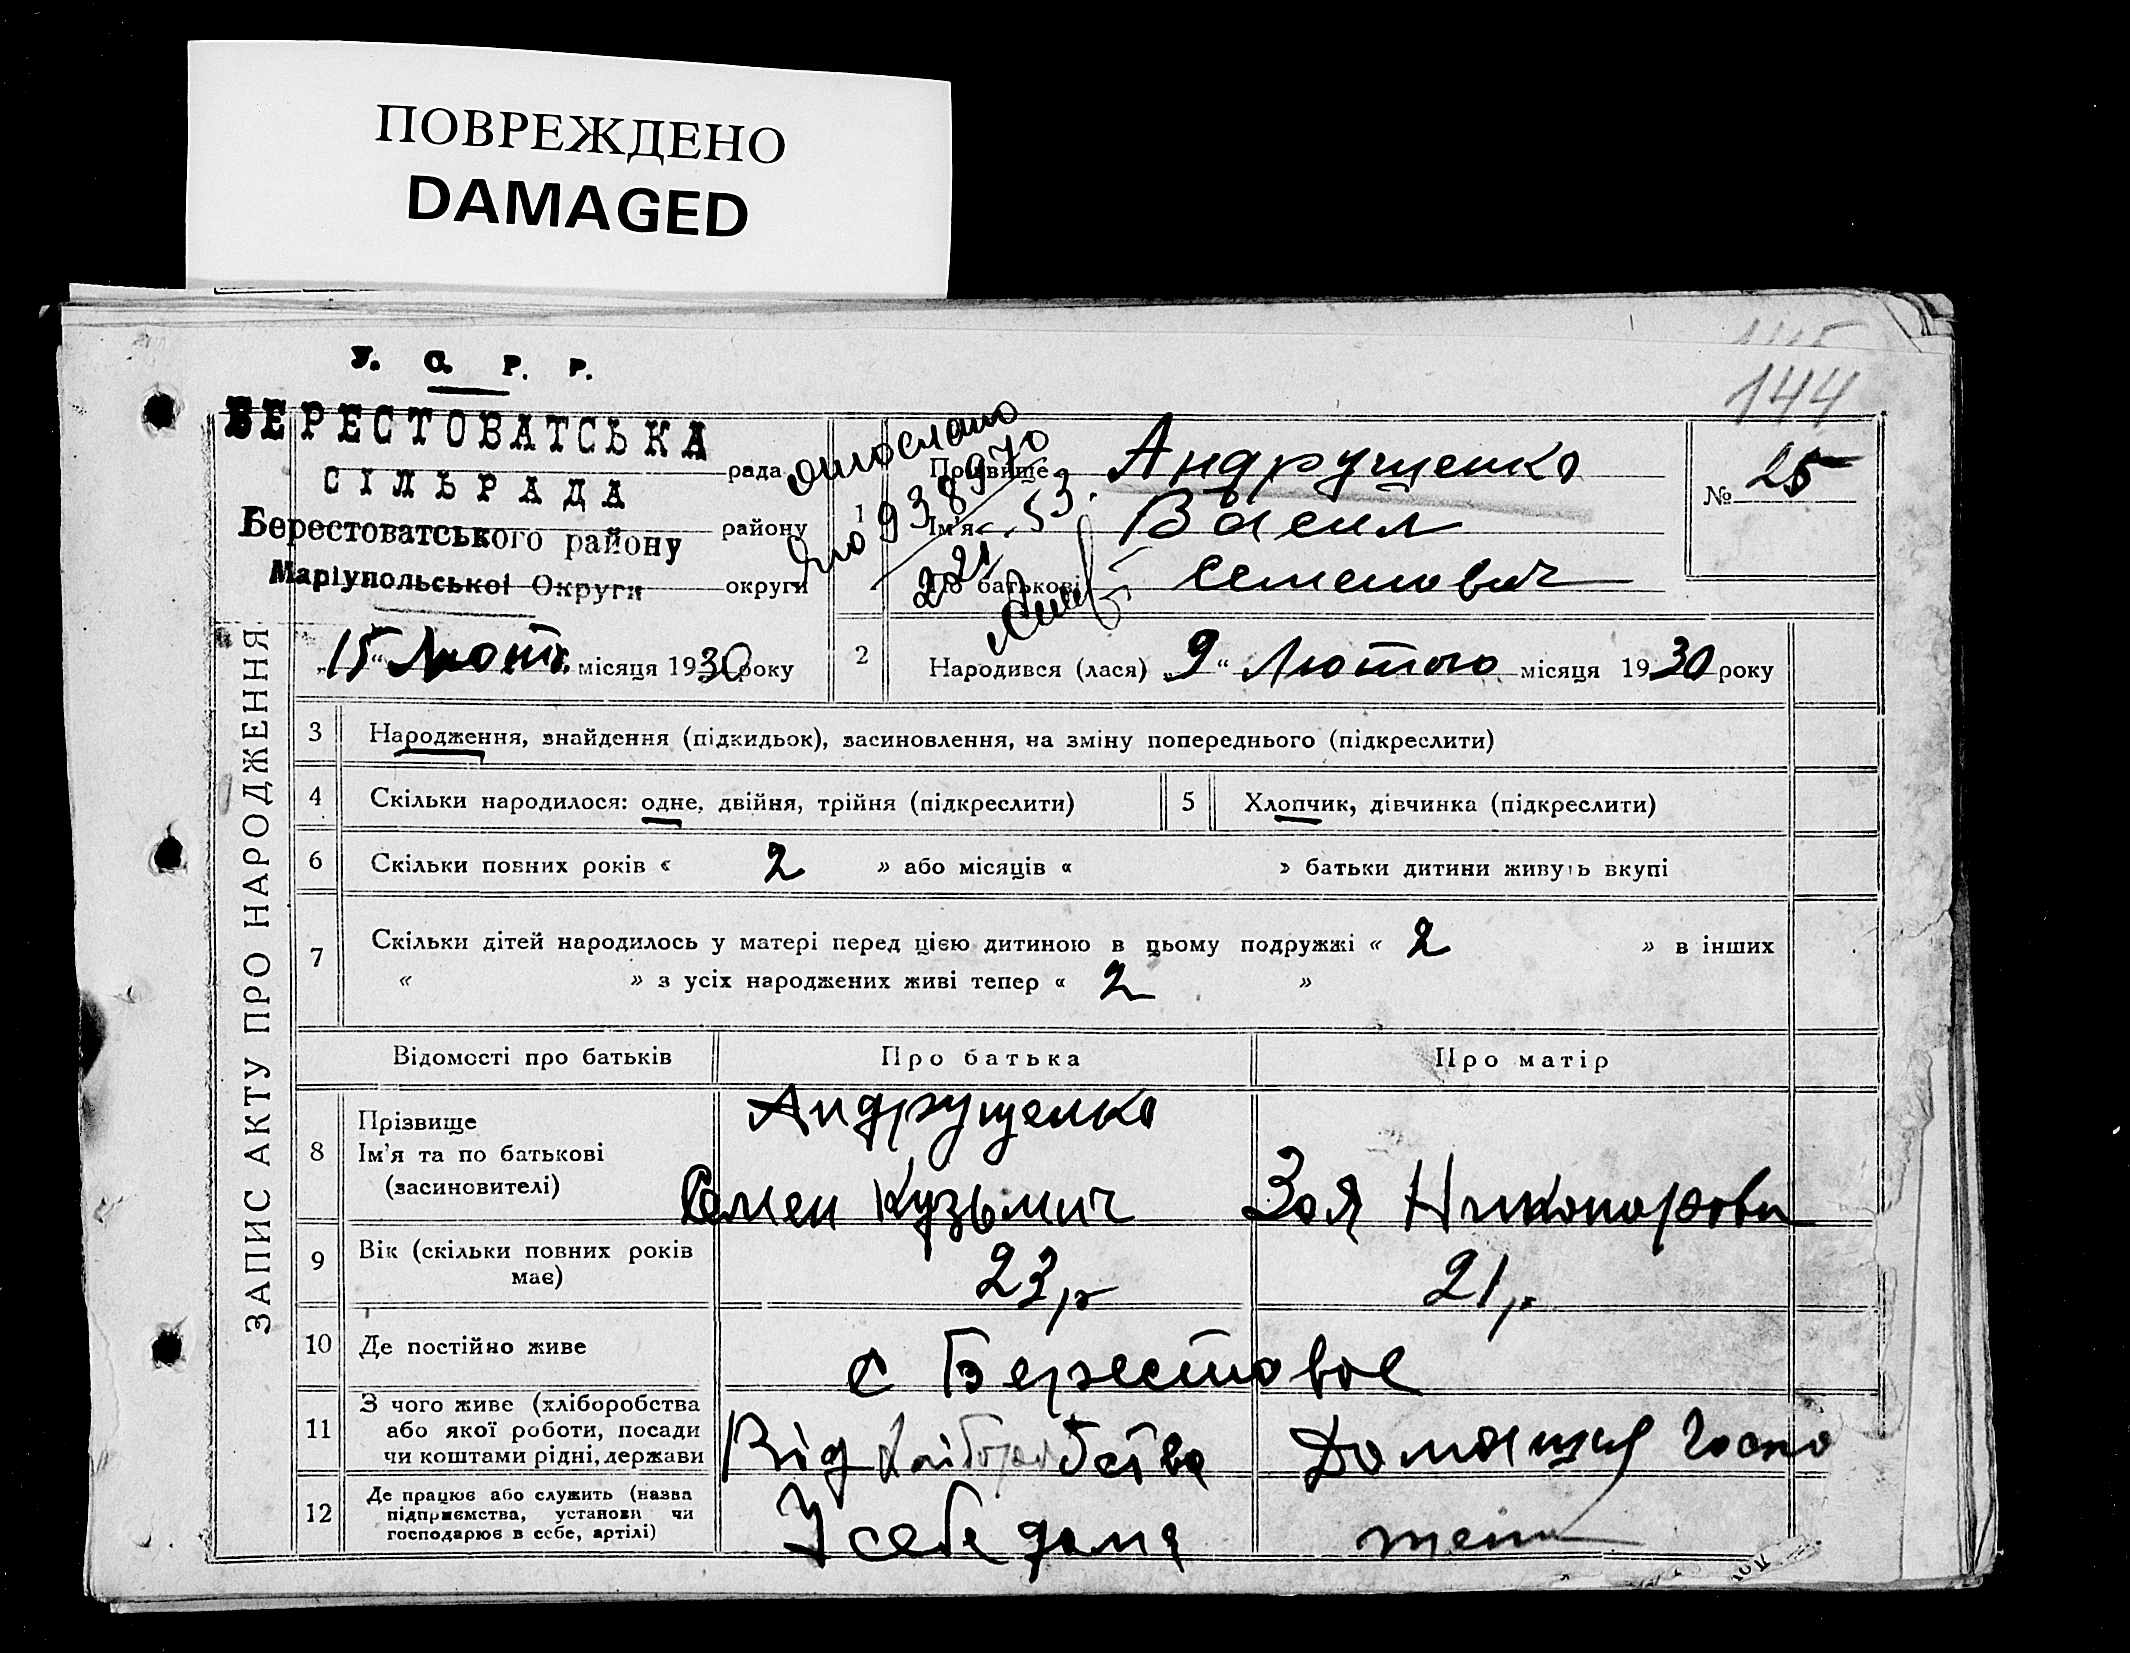 ПОВРЕЖДЕНО
DAMAGED
У. С. Р. Р.
145
144
БЕРЕСТОВАТСЬКА
рада
СІЛЬРАДА
Берестоватського району
району
Маріупольської Округи
округи
„15“ Лют. місяця 1930 року
ЗАПИС АКТУ ПРО НАРОДЖЕННЯ
1
Прізвище Андрущенко
Ім'я Васил
По батькові Семенович
№ 25
2
Народився (лася) „9“ Лютого місяця 1930 року
3 Народження, знайдення (підкидьок), засиновлення, на зміну попереднього (підкреслити)
4 Скільки народилося: одне, двійня, трійня (підкреслити)
5 Хлопчик, дівчинка (підкреслити)
6 Скільки повних років « 2 » або місяців « » батьки дитини живуть вкупі
7 Скільки дітей народилось у матері перед цією дитиною в цьому подружжі « 2 » в інших
« » з усіх народжених живі тепер « 2 »
Відомості про батьків Про батька Про матір
8 Прізвище
Ім'я та по батькові
(засиновителі)
Андрущенко
Семен Кузьмич Зоя
9 Вік (скільки повних років
має)
23 р 21 р.
10 Де постійно живе
с Берестовое
11 З чого живе (хліборобства
або якої роботи, посади
чи коштами рідні, держави
Від хліборобства Домашня госпо
12 Де працює або служить (назва
підприємства, установи чи
господарює в себе, артілі)
У себе дома